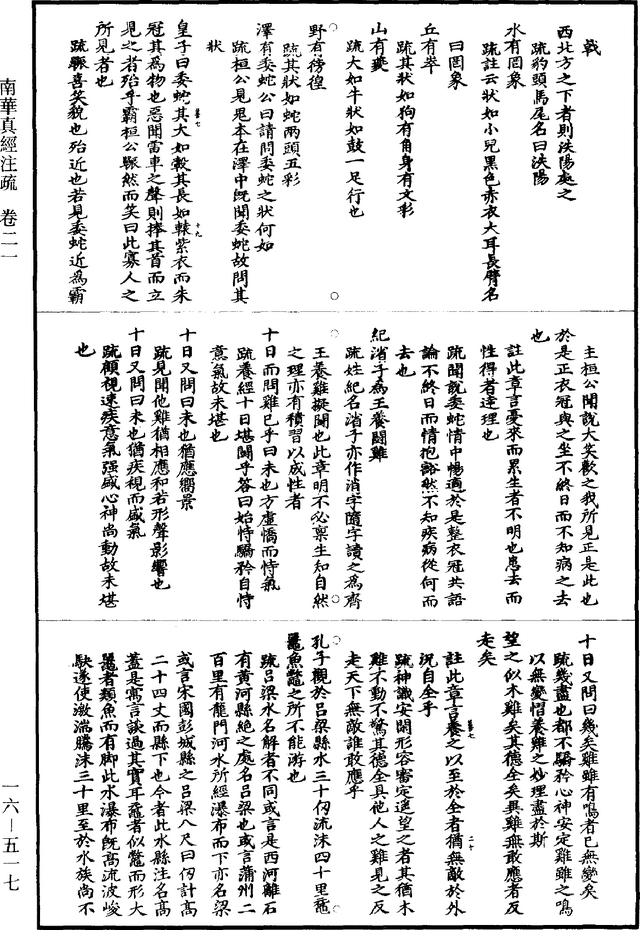 戟
西北方之下者則泆陽處之
疏豹頭馬尾名曰泆陽
水有罔象
疏註云狀如小兒黑色赤衣大耳長臂名
曰罔象
丘有峷
疏其狀如狗有角身有文彩
山有夔
疏大如牛狀如鼓一足行也
野有彷徨
疏其狀如蛇兩頭五彩
澤有委蛇公曰請問委蛇之狀何如
疏桓公見鬼本在澤中既聞委蛇故問其
狀
皇子曰委蛇其大如轂其長如轅紫衣而朱
冠其為物也惡聞雷車之聲則捧其首而立
見之者殆乎霸桓公囅然而笑曰此寡人之
所見者也
疏囅喜笑貌也殆近也若見委蛇近為霸
主桓公聞說大笑歡之我所見正是此也
於是正衣冠與之坐不終日而不知病之去
也
註此章言憂來而累生者不明也患去而
性得者達理也
疏聞說委蛇情中暢適於是整衣冠共語
論不終日而情抱豁然不知疾病從何而
去也
紀渻子為王養鬬雞
疏姓紀名渻子亦作消字隨字讀之為齊
王養雞擬鬬也此章明不必稟生知自然
之理亦有積習以成性者
十日而問雞已乎曰未也方虛憍而恃氣
疏養經十日堪鬬乎答曰始恃驕矜自恃
意氣故未堪也
十日又問曰未也猶應嚮景
疏見聞他雞猶相應和若形聲影響也
十日又問曰未也猶疾視而盛氣
疏顧視速疾意氣强盛心神尚動故未堪
也
十日又問曰幾矣雞雖有鳴者已無變矣
疏幾盡也都不驕矜心神安定雞雖之鳴
以無變慴養雞之妙理盡於斯
望之似木雞矣其德全矣異雞無敢應者反
走矣
註此章言養之以至於全者猶無敵於外
況自全乎
疏神識安閑形容審定遥望之者其猶木
雞不動不驚其德全具他人之雞見之反
走天下無敵誰敢應乎
孔子觀於呂梁縣水三十仞流沫四十里黿
鼉魚鼈之所不能游也
疏呂梁水名解者不同或言是西河離石
有黃河縣絕之處名呂梁也或言蒲州二
百里有龍門河水所經瀑布而下亦名呂梁
或言宋國彭城縣之呂梁八尺曰仞計高
二十四丈而縣下也今者此水縣注名高
蓋是寓言談過其實耳黿者似鼈而形大
鼉者類魚而有脚此水瀑布既高流波峻
駛遂使激湍騰沫三十里至於水族尚不
南華真經注疏 卷二一
一六—五一七